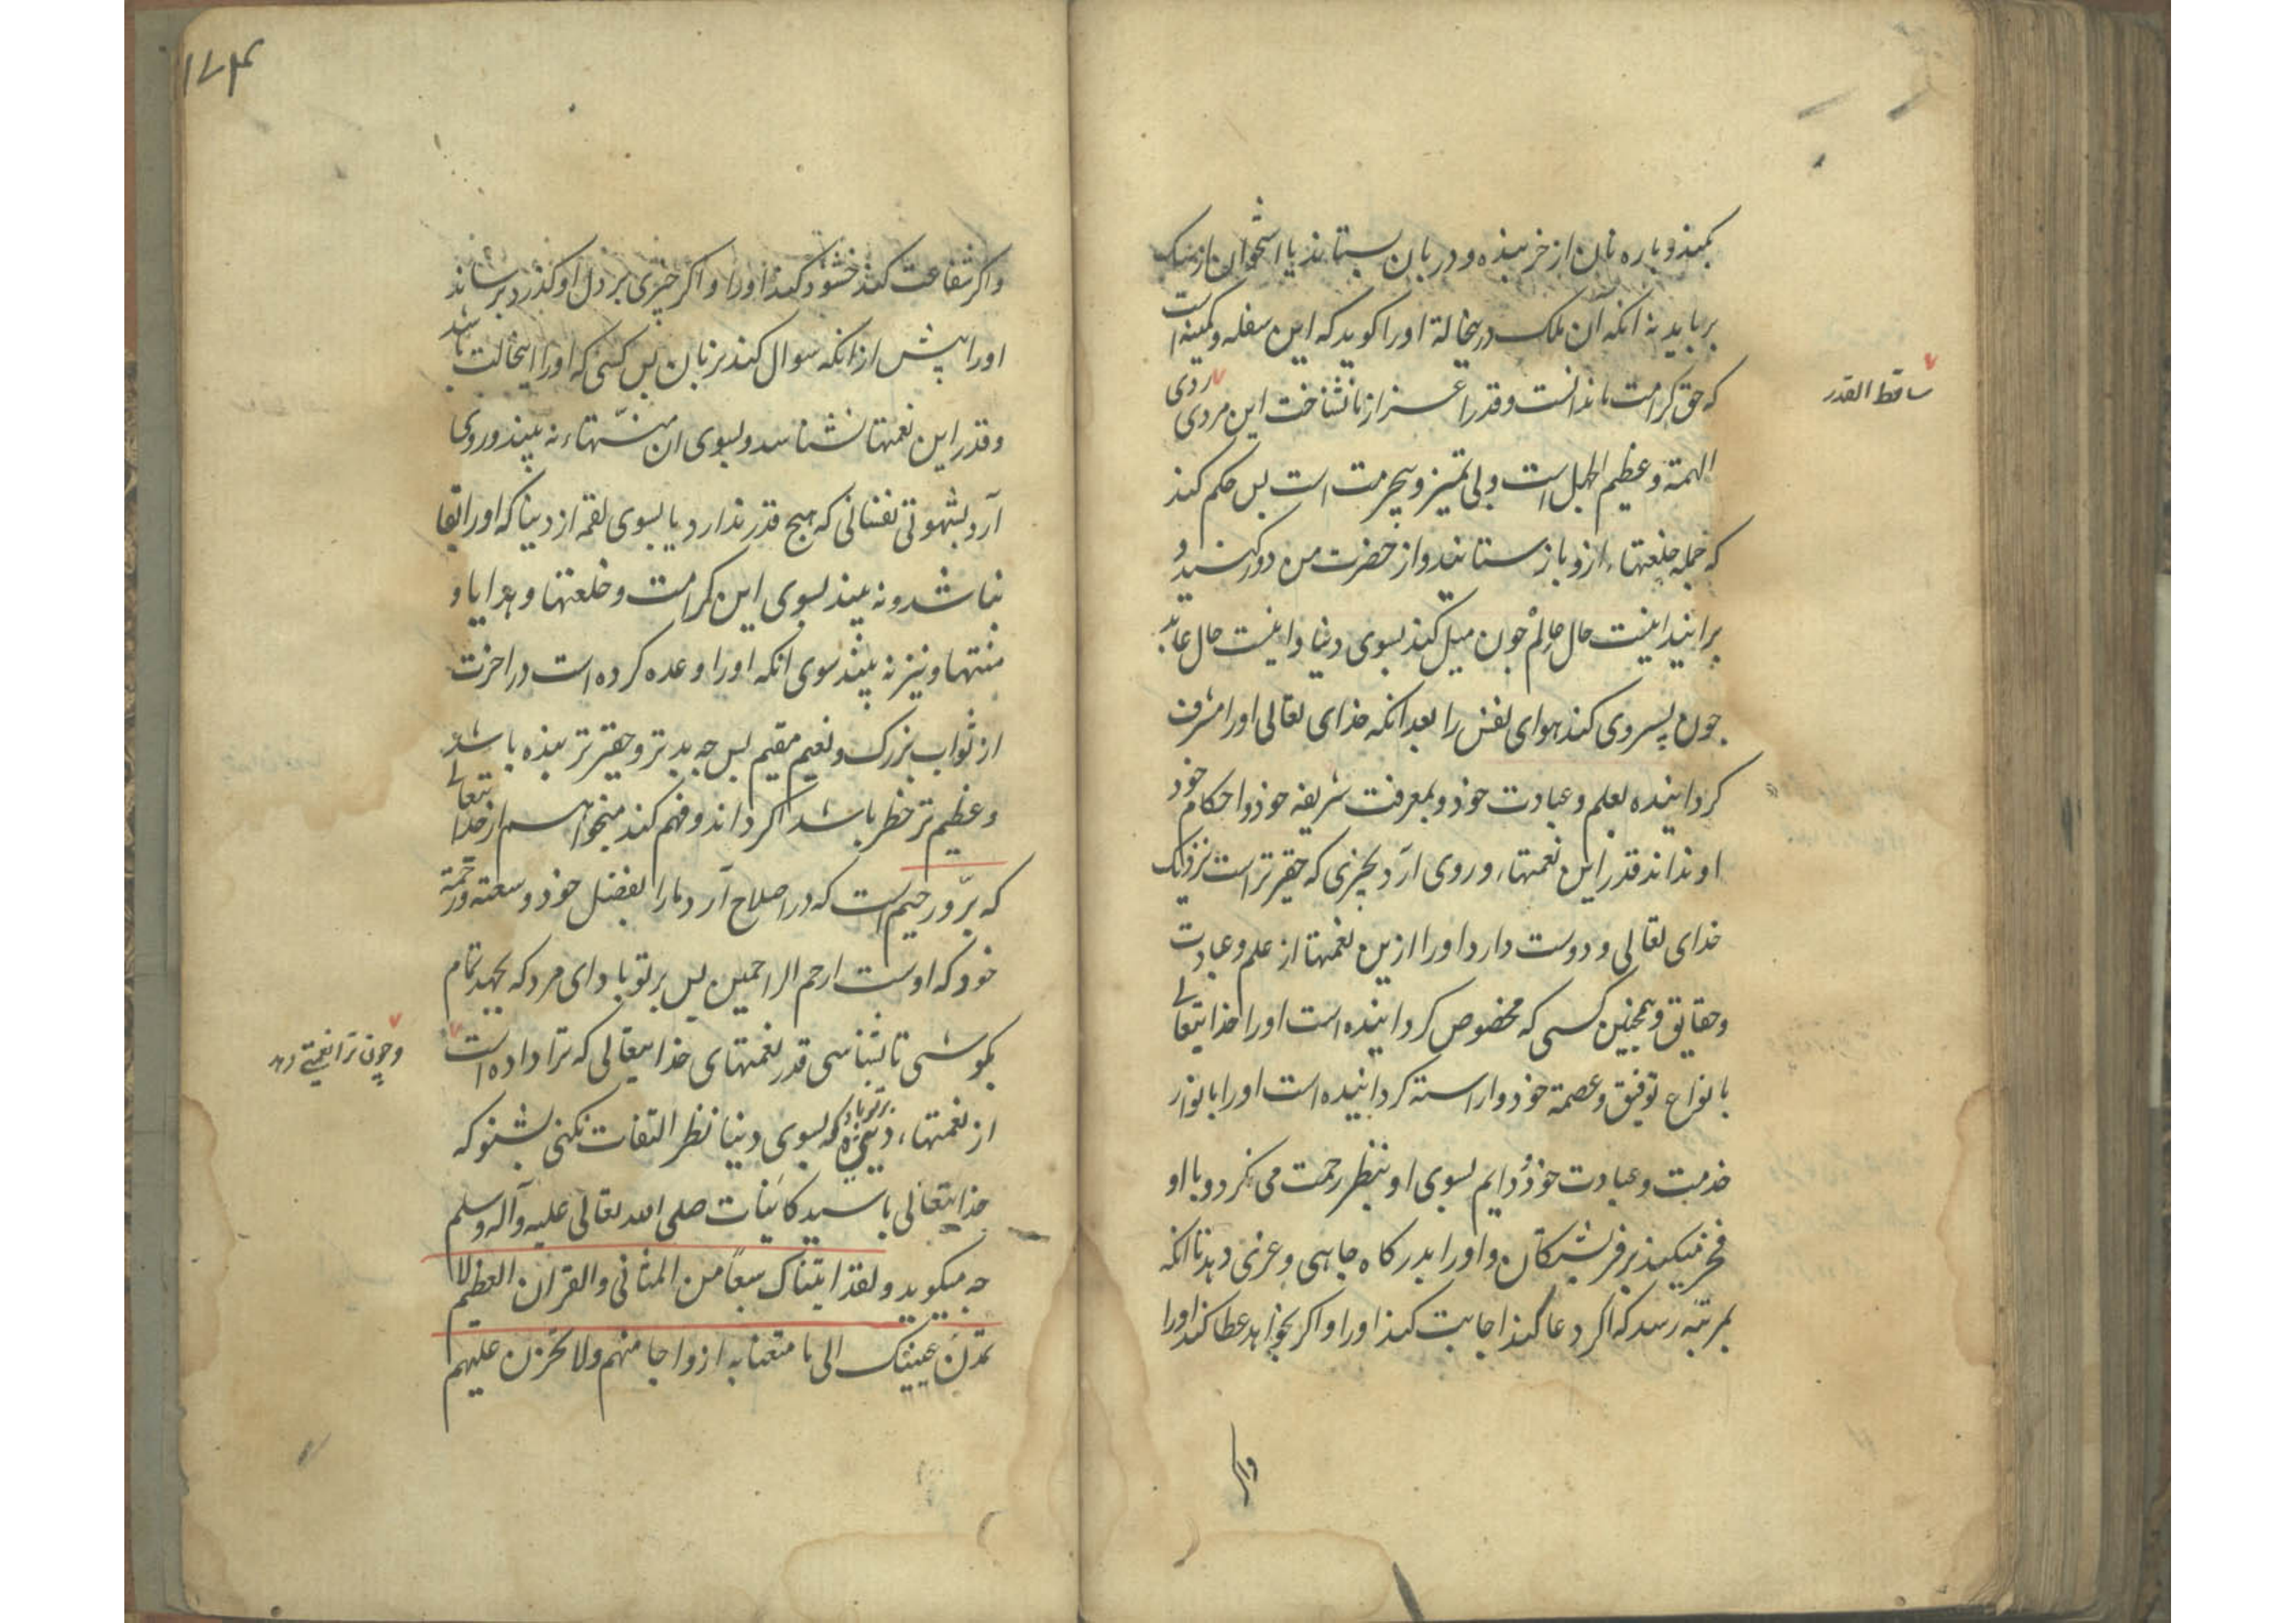 بکیذ و پاره نان از خربنده و دربان بستاند یا استخوان از سک
برباید نه انکه آن ملک درینحالة او را کوید که این سفله و کمینه است
که حق کرامت ما ندانست و قدر اعزاز ما نشناخت این مردی ردی
ساقط القدر
الهمة و عظیم الجهل است و بی تمیز و بیحرمت است بس حکم کند
که جمله خلعتهاء ازو باز ستانید و از حضرت من دور کنید و
برانید اینست حال عالم جون میل کند بسوی دنیا و اینست حال عابد
جون پسروی کند هوای نفس را بعد انکه خدای تعالی او را مشرف
کردانیده بعلم و عبادت خود و بمعرفت شریفه خود و احکام خود
او نداند قدر این نعمتهاء و روی آرد بجیزی که حقیرتر است نزدیک
خدای تعالی و دوست دارد او را ازین نعمتها از علم و عبادت
و حقایق و همجنین کسی که مخصوص کردانیده است او را خدایتعالی
بانواع توفیق و عصمة خود و اراسته کردانیده است او را بانوار
خدمت و عبادت خود و دایم بسوی او بنظر رحمت می نکرد و با او
فخر میکند بر فرشتکان و او را بدرکاه جاهی و عزی دهد تا انکه
بمرتبه رسد که اکر دعا کند اجابت کند او را و اکر بخواهد عطا کند او را
واکر
١٧٤
واکر شفاعت کند خشنود کند او را و اکر جیزی بر دل او کذرد برساند
او را پیش از انکه سوال کند بزبان بس کسی که او را اینحالت باشد
و قدر این نعمتها نشناسد و بسوی ان منتهاء نه بیند و روی
آرد بشهوتی نفسانی که هیج قدر ندارد یا بسوی لقمه از دنیا که او را بقا
نباشد و نه بیند بسوی این کرامت و خلعتها و هدایا و
منتها و نیز نه بیند سوی انکه او را وعده کرده است در اخرت
از ثواب بزرک و نعیم مقیم بس جه بدتر و حقیرتر بنده باشد
و عظیم تر خطر باشد اکر داند و فهم کند میخواهم از خدا تعالی
که برّ و رحیم است که در اصلاح آرد ما را بفضل خود و سعة و رحمة
خود که اوست ارحم الراحمین بس بر تو باد ای مرد که بجهد تمام
بکوشی تا بشناسی قدر نعمتهای خدایتعالی که ترا داده است
و چون ترا نعمتی دهد
از نعمتهاء دینی بر تو باد که بسوی دنیا نظر التفات نکنی بشنو که
خدایتعالی با سید کائنات صلی الله تعالی علیه و آله و سلم
جه میکوید و لقد اتیناک سبعًا من المثانی و القران العظیم لا
تمدن عینیک الی ما متعنا به ازواجا منهم ولا تحزن علیهم